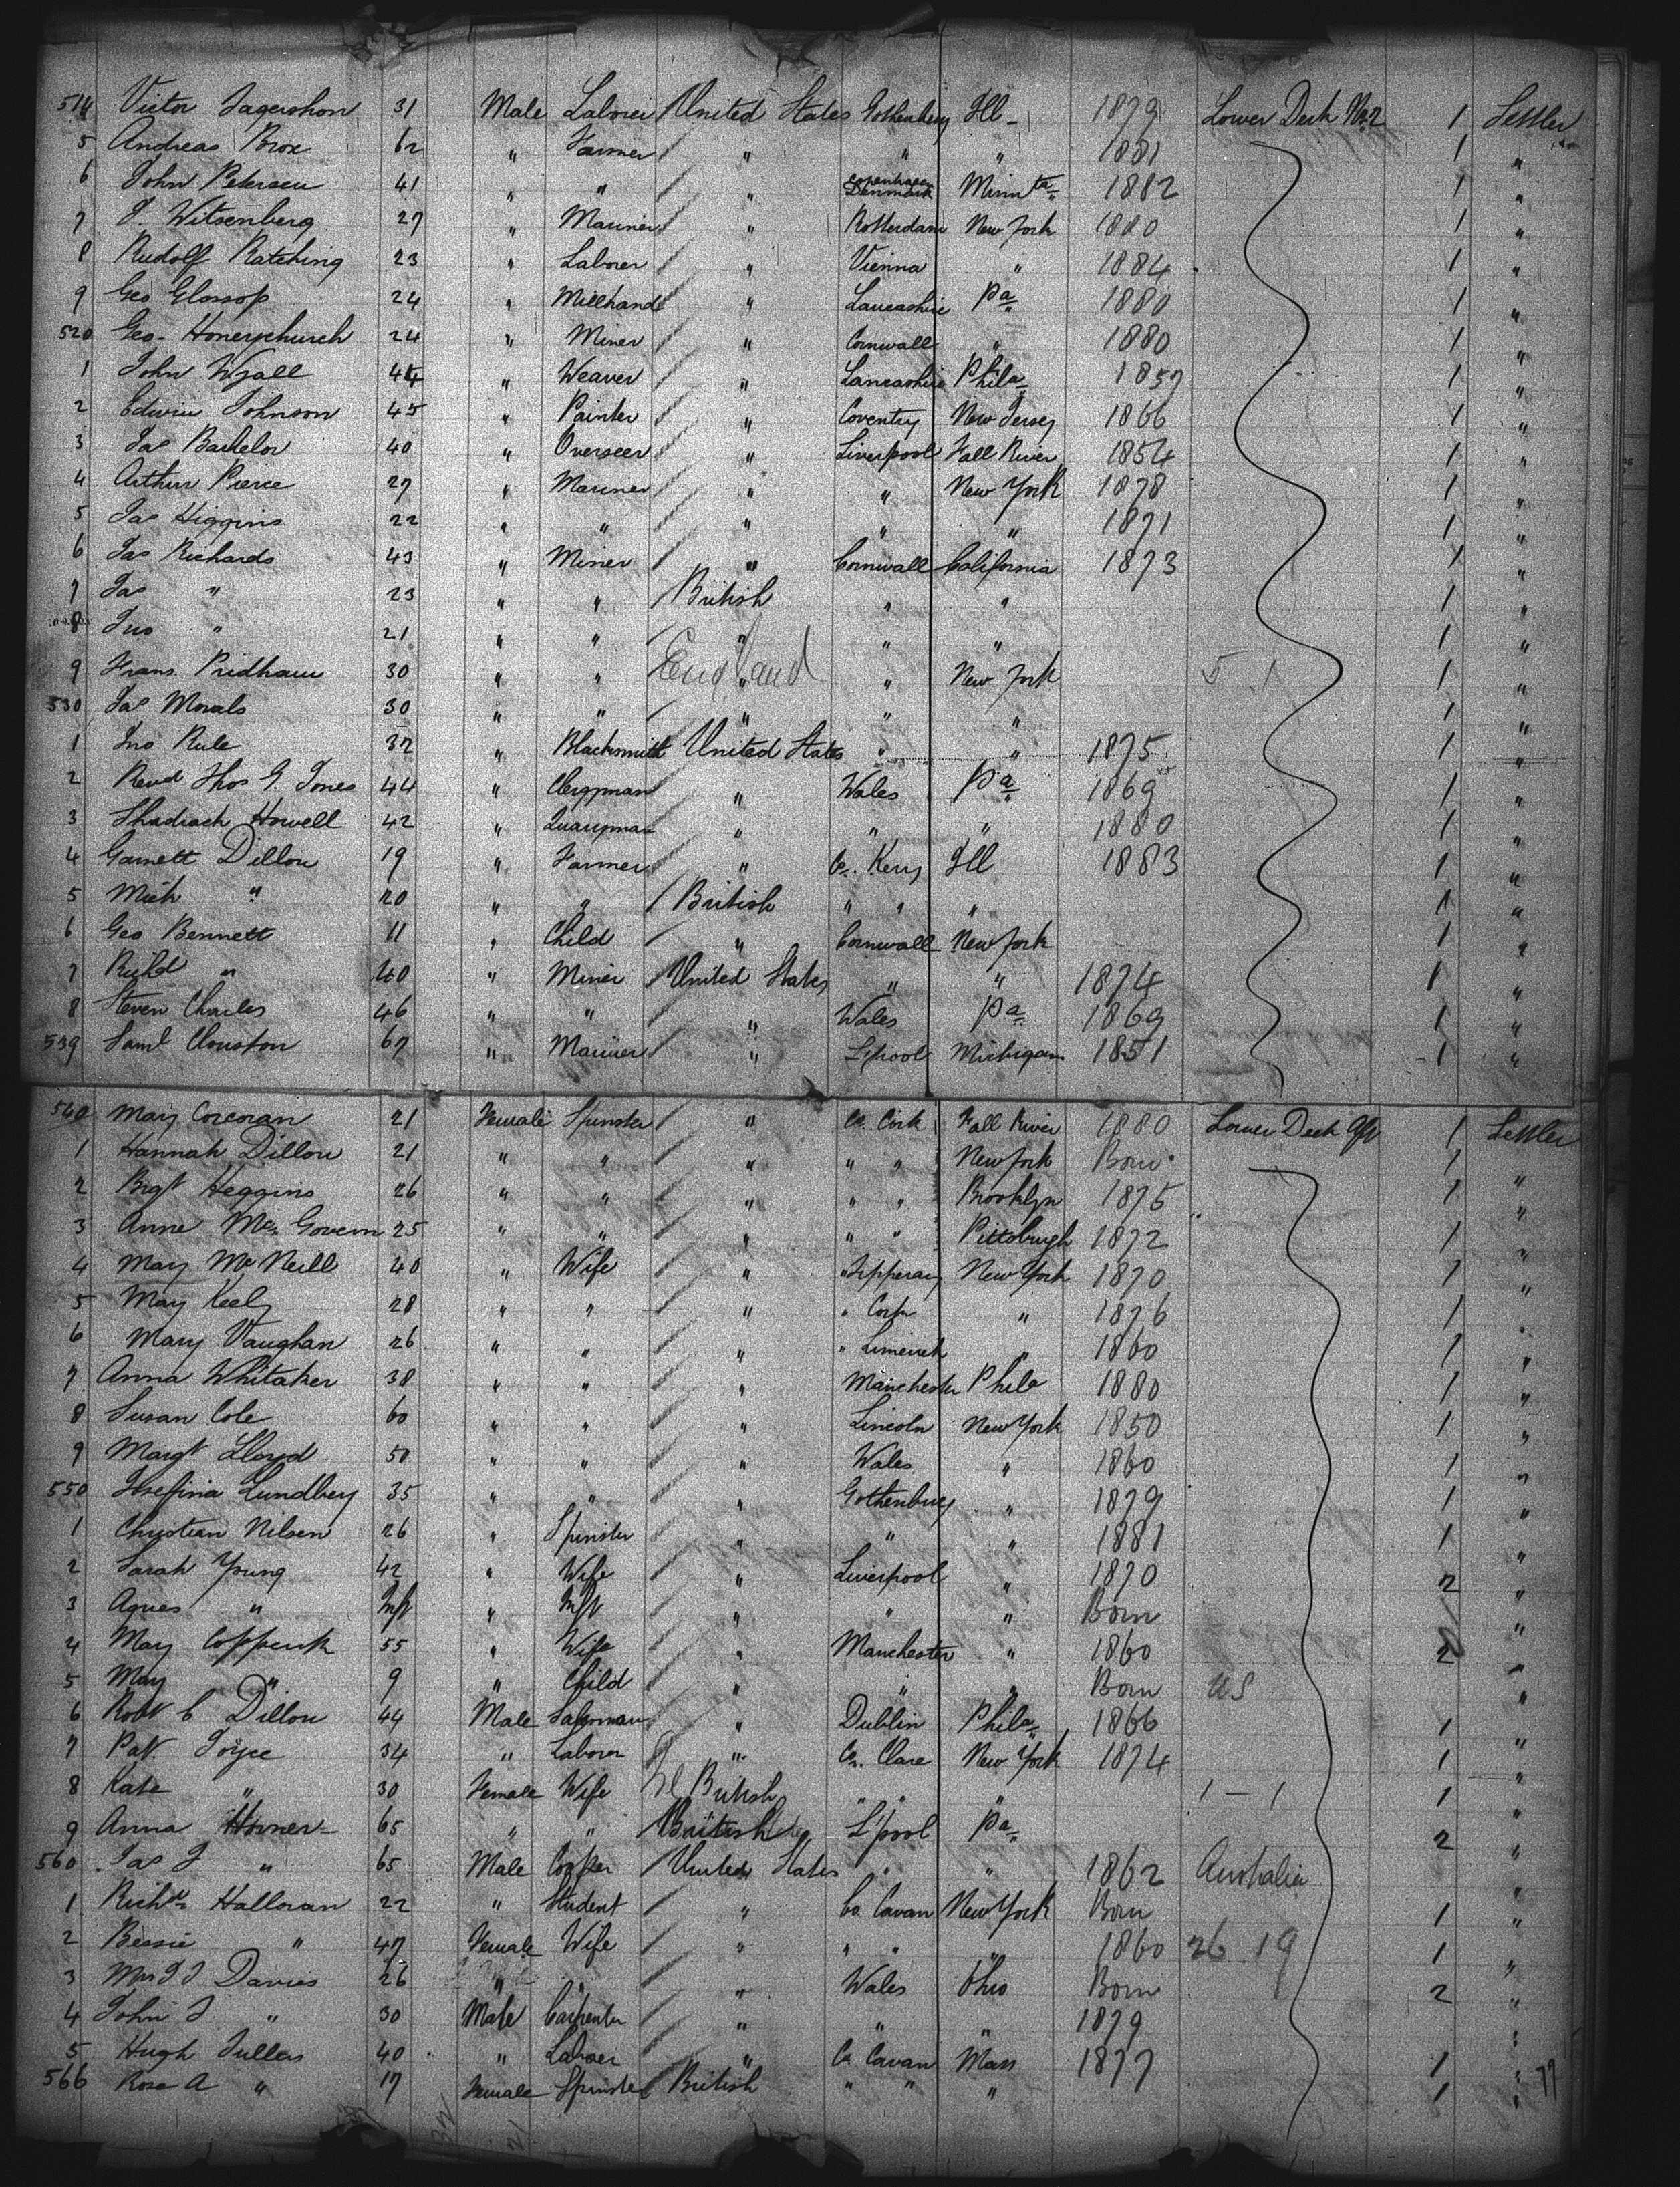 514 Victor Jagershon 31 Male Laborer United States Gothenburg Ill - 1879 Lower Deck No 2 1 Settler
5 Andreas Brox 62 " Farmer " " " 1881 1 "
6 John Petersen 41 " " " Copenhagen Denmark Minnta 1882 1 "
7 J. Witsenberg 27 " Mariner " Rotterdam New York 1880 1 "
8 Rudolf Ratching 23 " Laborer " Vienna " 1884 1 "
9 Geo Glossop 24 " Millhand " Lancashire Pa 1880 1 "
520 Geo - Honeychurch 24 " Miner " Cornwall " 1880 1 "
1 John Wyall 44 " Weaver " Lancashire Phila 1857 1 "
2 Edwin Johnson 45 " Painter " Coventry New Jersey 1866 1 "
3 Jas Bachelor 40 " Overseer " Liverpool Fall River 1854 1 "
4 Arthur Pierce 27 " Mariner " " New York 1878 1 "
5 Jas Higgins 22 " " " " " 1871 1 "
6 Jas Richards 43 " Miner " Cornwall California 1873 1 "
7 Jas " 23 " " British " " 1 "
8 Jno " 21 " " " " " 1 "
9 Frans. Pridham 30 " " England " " New York 5 1 1 "
530 Jas Morals 30 " " " " " 1 "
1 Jno Rule 32 " Blacksmith United States " " 1875 1 "
2 Revd Thos G. Jones 44 " Clergyman " Wales Pa 1869 1 "
3 Shadrach Howell 42 " Quarryman " " " 1880 1 "
4 Garnett Dillon 19 " Farmer " Co. Kerry Ill 1883 1 "
5 Mich " 20 " " British " " " 1 "
6 Geo Bennett 11 " Child " Cornwall New York 1 "
7 Richd " 40 " Miner United States " " 1874 1 "
8 Steven Charles 46 " " " Wales Pa 1869 1 "
539 Saml Clouston 67 " Mariner " L'pool Michigan 1851 1 "
540 Mary Corcoran 21 Female Spinster " Co. Cork Fall River 1880 Lower Deck Aft 1 Settler
1 Hannah Dillon 21 " " " " " New York Born 1 "
2 Brigt Heggins 26 " " " " " Brooklyn 1875 1 "
3 Anne Mc Govern 25 " " " " " Pittsburgh 1872 1 "
4 Mary McNeill 40 " Wife " " Tipperary New York 1870 1 "
5 Mary Keely 28 " " " " Cork " 1876 1 "
6 Mary Vaughan 26 " " " " Limerick " 1860 1 "
7 Anna Whitaker 38 " " " Manchester Phila 1880 1 "
8 Susan Cole 60 " " " Lincoln New York 1850 1 "
9 Margt Lloyd 50 " " " Wales " 1860 1 "
550 Josefina Lundberg 35 " " " Gothenburg " 1879 1 "
1 Christian Nilsen 26 " Spinster " " " 1881 1 "
2 Sarah Young 42 " Wife " Liverpool " 1870 2 "
3 Agnes " Inft " Inft " " " Born "
4 Mary Coppuck 55 " Wife " Manchester " 1860 2 "
5 Mary " 9 " Child " " " Born US "
6 Robt C Dillon 44 Male Salesman " Dublin Phila 1866 1 "
7 Pat. Joyce 34 " Laborer " Co. Clare New York 1874 1 "
8 Kate " 30 Female Wife British " " " 1 - 1 1 "
9 Anna Horner - 65 " " British L'pool Pa 2 "
560 Jas J " 65 Male Cooper United States " " 1862 Australia "
1 Richd Halloran 22 " Student " Co. Cavan New York Born 1 "
2 Bessie " 47 Female Wife " " " " 1860 26 19 1 "
3 Mrs J J Davies 26 " " " Wales Ohio Born 2 "
4 John J " 30 Male Carpenter " " " 1879 "
5 Hugh Tullers 40 " Laborer " Co Cavan Mass 1877 1 "
566 Rose A " 17 Female Spinster British " " " 1 "
79